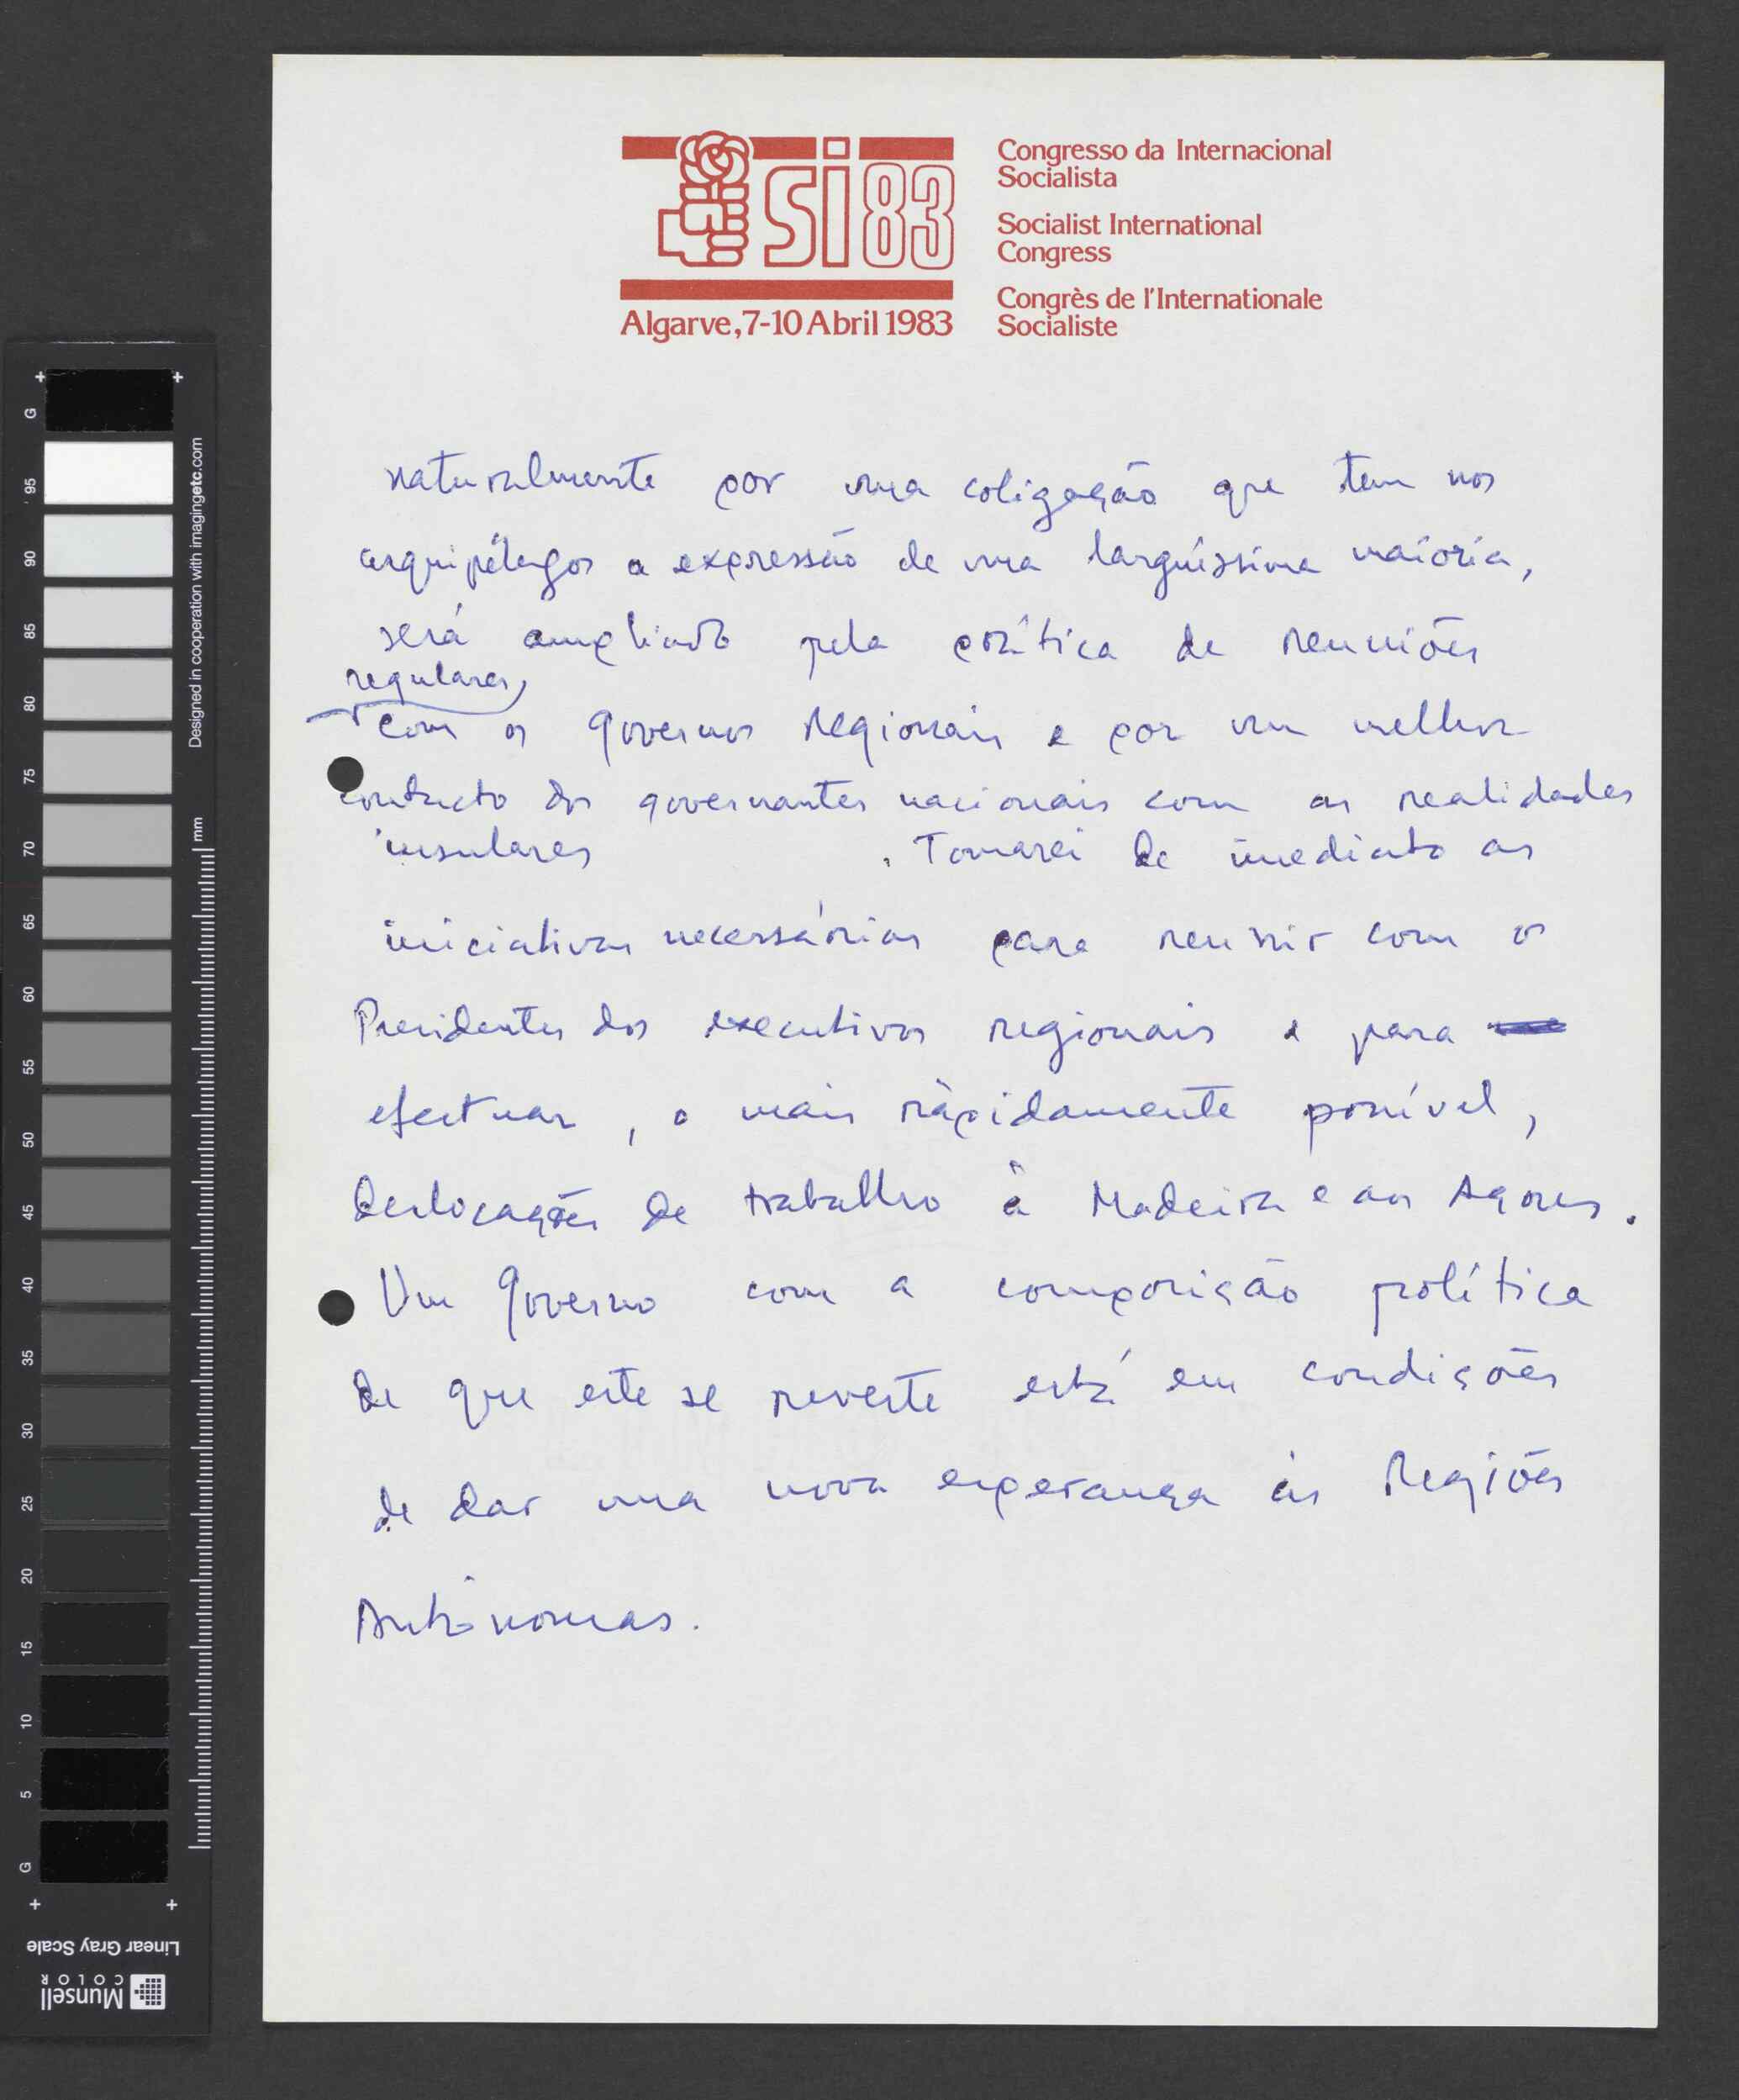 si 83
Algarve, 7-10 Abril 1983
Congresso da Internacional
Socialista
Socialist International
Congress
Congrès de l'Internationale
Socialiste
naturalmente por uma coligação que tem nos
arquipélagos a expressão de uma larguíssima maioria,
será ampliado pela prática de reuniões
regulares,
com os governos Regionais e por um melhor
contacto dos governantes nacionais com as realidades
insulares . Tomarei de imediato as
iniciativas necessárias para reunir com os
Presidentes dos executivos regionais e para
efectuar, o mais ràpidamente possível,
deslocações de trabalho à Madeira e aos Açores.
Um Governo com a composição política
de que este se reveste está em condições
de dar uma nova esperança às Regiões
Autónomas.
G 95 90 85 80 75 70 65 60 55 50 45 40 35 30 25 20 15 10 5 G
mm
Designed in cooperation with imagingetc.com
Linear Gray Scale
Munsell
COLOR